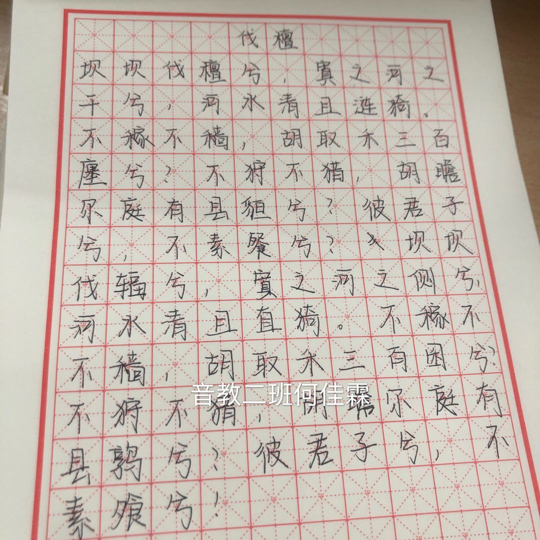 伐檀
坝坝伐檀兮，寘之河之
干兮，河水清且涟猗。
不稼不穑，胡取禾三百
廛兮？不狩不猎，胡瞻
尔庭有县貆兮？彼君子
兮，不素餐兮？坝坝
伐辐兮，寘之河之侧兮，
河水清且直猗。不稼不
不穑，胡取禾三百囷兮？
不狩不猎，胡瞻尔庭有
音教二班何佳霖
县鹑兮？彼君子兮，不
素飧兮！